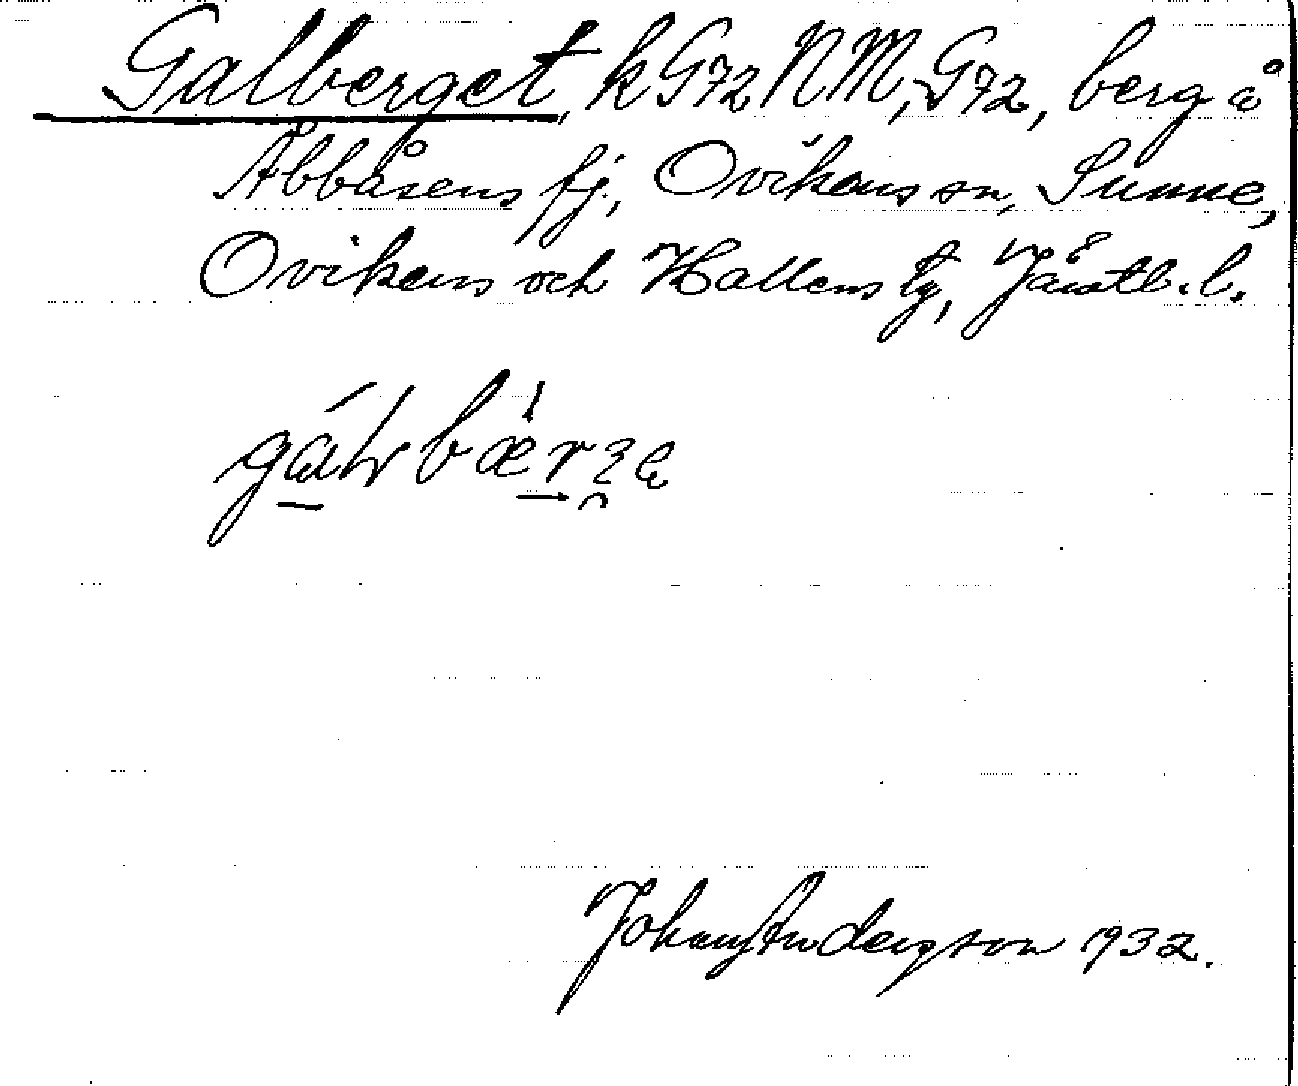 Galberget, k G72 NM, G72, berg å
Åbbåsens fj., Ovikens sn, Sunne,
Ovikens och Hallens tg, Jämtl. l.
Johan Anderson 1932.